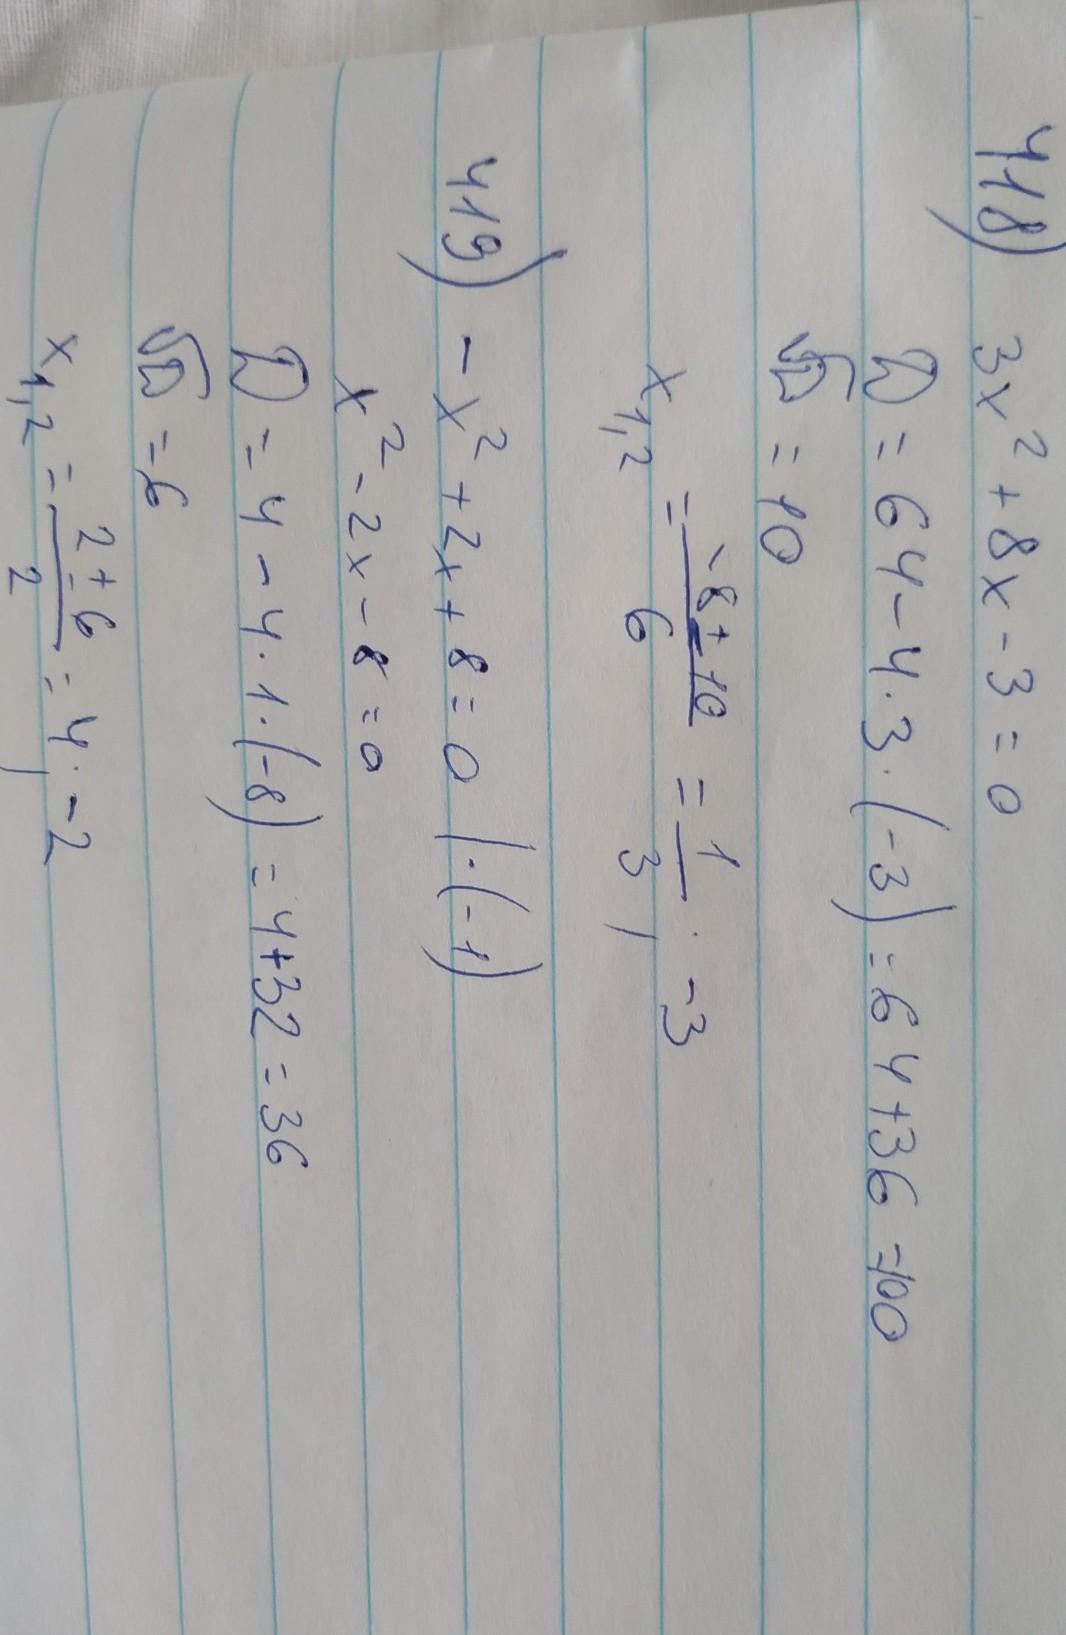 418) 3x² + 8x - 3 = 0
D = 64 - 4 · 3 · (-3) = 64 + 36 = 100
√D = 10
x₁,₂ = (-8 ± 10)/6 = 1/3 ; -3
419) - x² + 2x + 8 = 0 | · (-1)
x² - 2x - 8 = 0
D = 4 - 4 · 1 · (-8) = 4 + 32 = 36
√D = 6
x₁,₂ = (2 ± 6)/2 = 4 ; -2